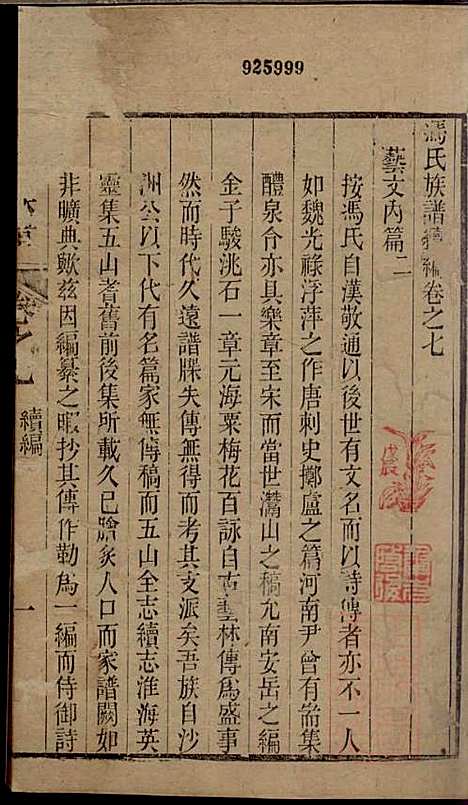 925999
馮氏族譜續編卷之七
藝文內篇二
按馮氏自漢敬通以後世有文名而以詩傳者亦不一人
如魏光祿浮萍之作唐刺史擲盧之篇河南尹曾有耑集
醴泉令亦具樂章至宋而當世潛山之稿允南安岳之編
金子駿洮石一章元海粟梅花百詠自古藝林傳為盛事
然而時代久遠譜牒失傳無得而考其支派矣吾族自沙
洲公以下代有名篇家無傳稿而五山全志續志淮海英
靈集五山耆舊前後集所載久已膾炙人口而家譜闕如
非曠典歟茲因編纂之暇抄其傳作勒為一編而侍御詩
卷之七
續編
一